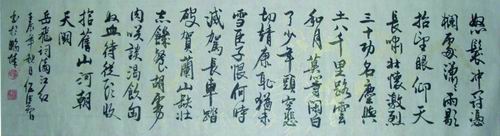 怒髮冲冠憑
欄處瀟瀟雨歇
抬望眼仰天
長嘯壯懷激烈
三十功名塵與
土八千里路雲
和月莫等閑白
了少年頭空悲
切靖康恥猶未
雪臣子恨何時
滅駕長車踏
破賀蘭山缺壯
志飢餐胡虜
肉笑談渴飲匈
奴血待從頭收
拾舊山河朝
天闕
岳飛詞滿江紅